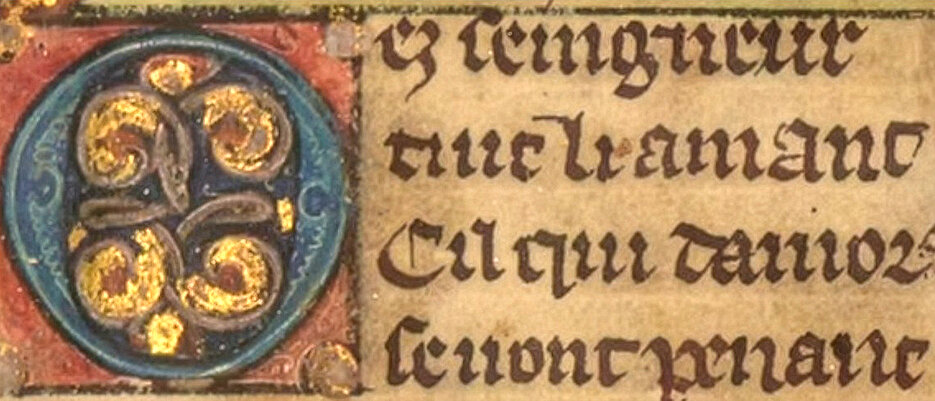 Oez seingneur
tuit li amant
Cil qui damors
se uont penant